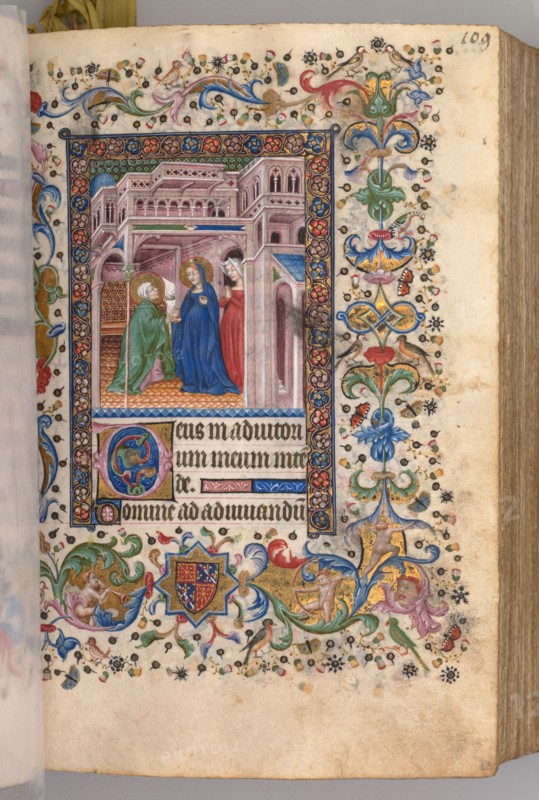 109
Deus in adiutori
um meum inte
de.
Domine ad adiuuandū